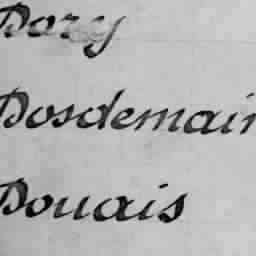 Dory
Dosdemain
Douais